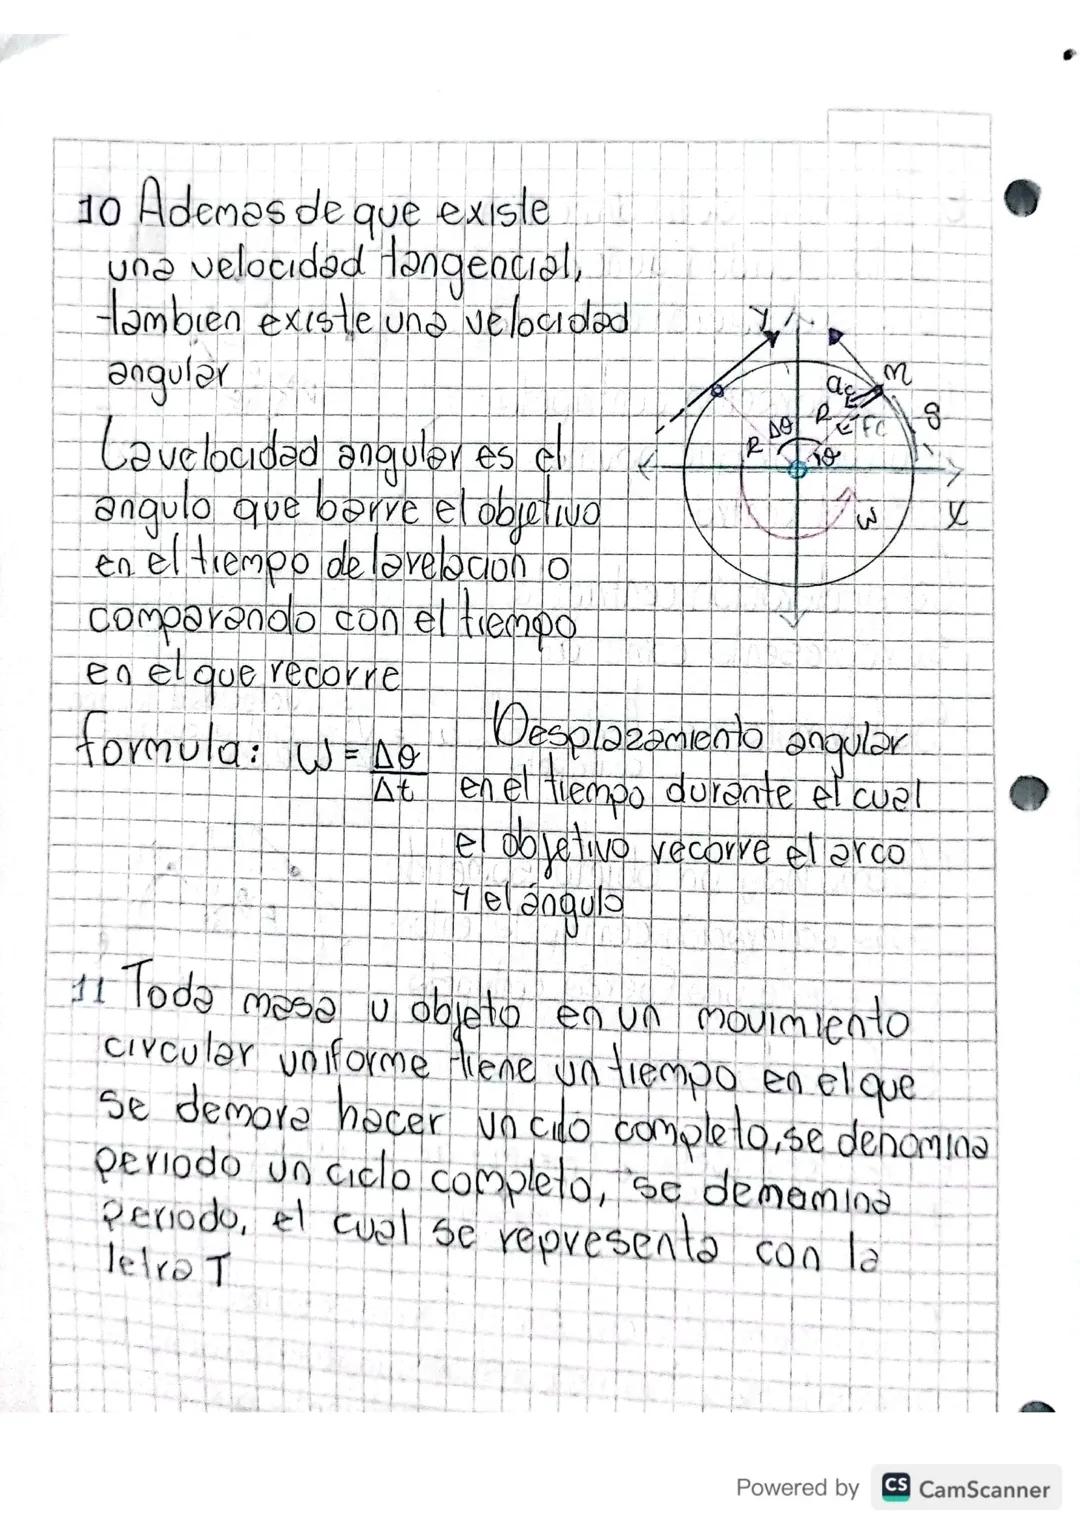 10 Ademas de que existe
una velocidad tangencial,
tambien existe una velocidad
angular
y
m
ac
R
S
Δθ
Fc
R
θ
La velocidad angular es el
angulo que barre el objetivo
w
x
en el tiempo de la relacion o
comparando con el tiempo
en el que recorre
formula: W = Δθ
Δt
Desplazamiento angular
en el tiempo durante el cual
el objetivo recorre el arco
y el ángulo
11 Toda masa u objeto en un movimiento
circular uniforme tiene un tiempo en el que
se demora hacer un cilo completo, se denomina
periodo un ciclo completo, se demamina
periodo, el cual se representa con la
letra T
Powered by CS CamScanner